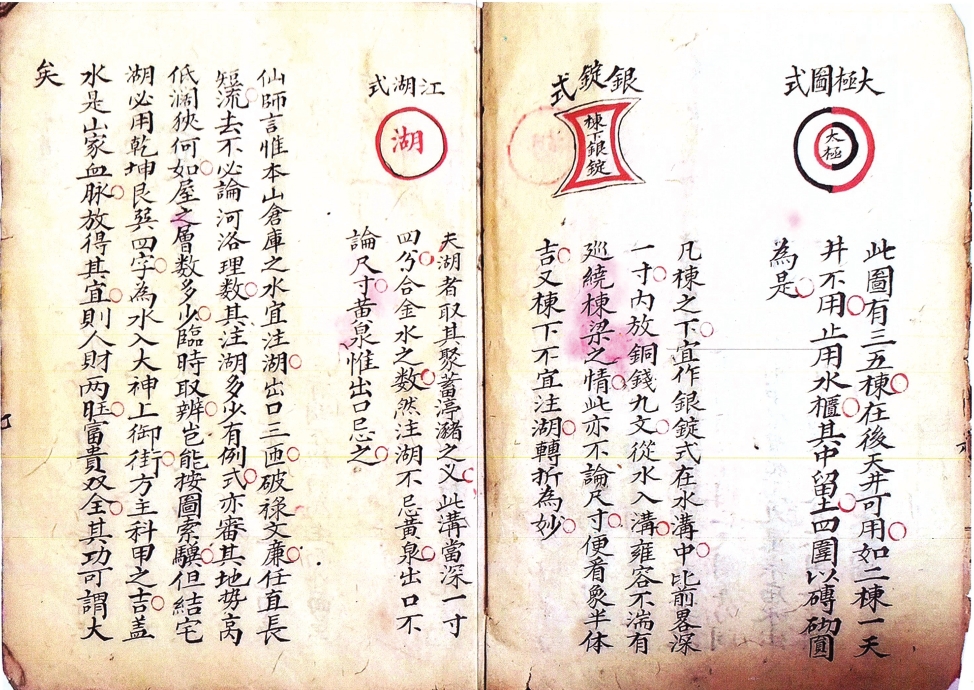 大極圖式
大極
此圖有三五棟在後天井可用如二棟一天
井不用止用水櫃其中留土四圍以磚砌圓
為是
銀錠式
棟下銀錠
凡棟之下宜作銀錠式在水溝中比前畧深
一寸內放銅錢九文從水入溝雍容不湍有
廵繞棟梁之情此亦不論尺寸便看象半体
吉又棟下不宜注湖轉折為妙
江湖式
湖
夫湖者取其聚蓄渟瀦之义此溝當深一寸
四分合金水之数然注湖不忌黃泉出口不
論尺寸黃泉惟出口忌之
仙師言惟本山倉庫之水宜注湖出口三匝破祿文廉任直長
短流去不必論河洛理数其注湖多少有例式亦審其地势高
低濶狹何如屋之層数多少臨時取辨岂能按圖索驥但結宅
湖必用乾坤艮巽四字為水入大神上御街方主科甲之吉盖
水是山家血脉放得其宜則人財両旺富貴双全其功可謂大
矣